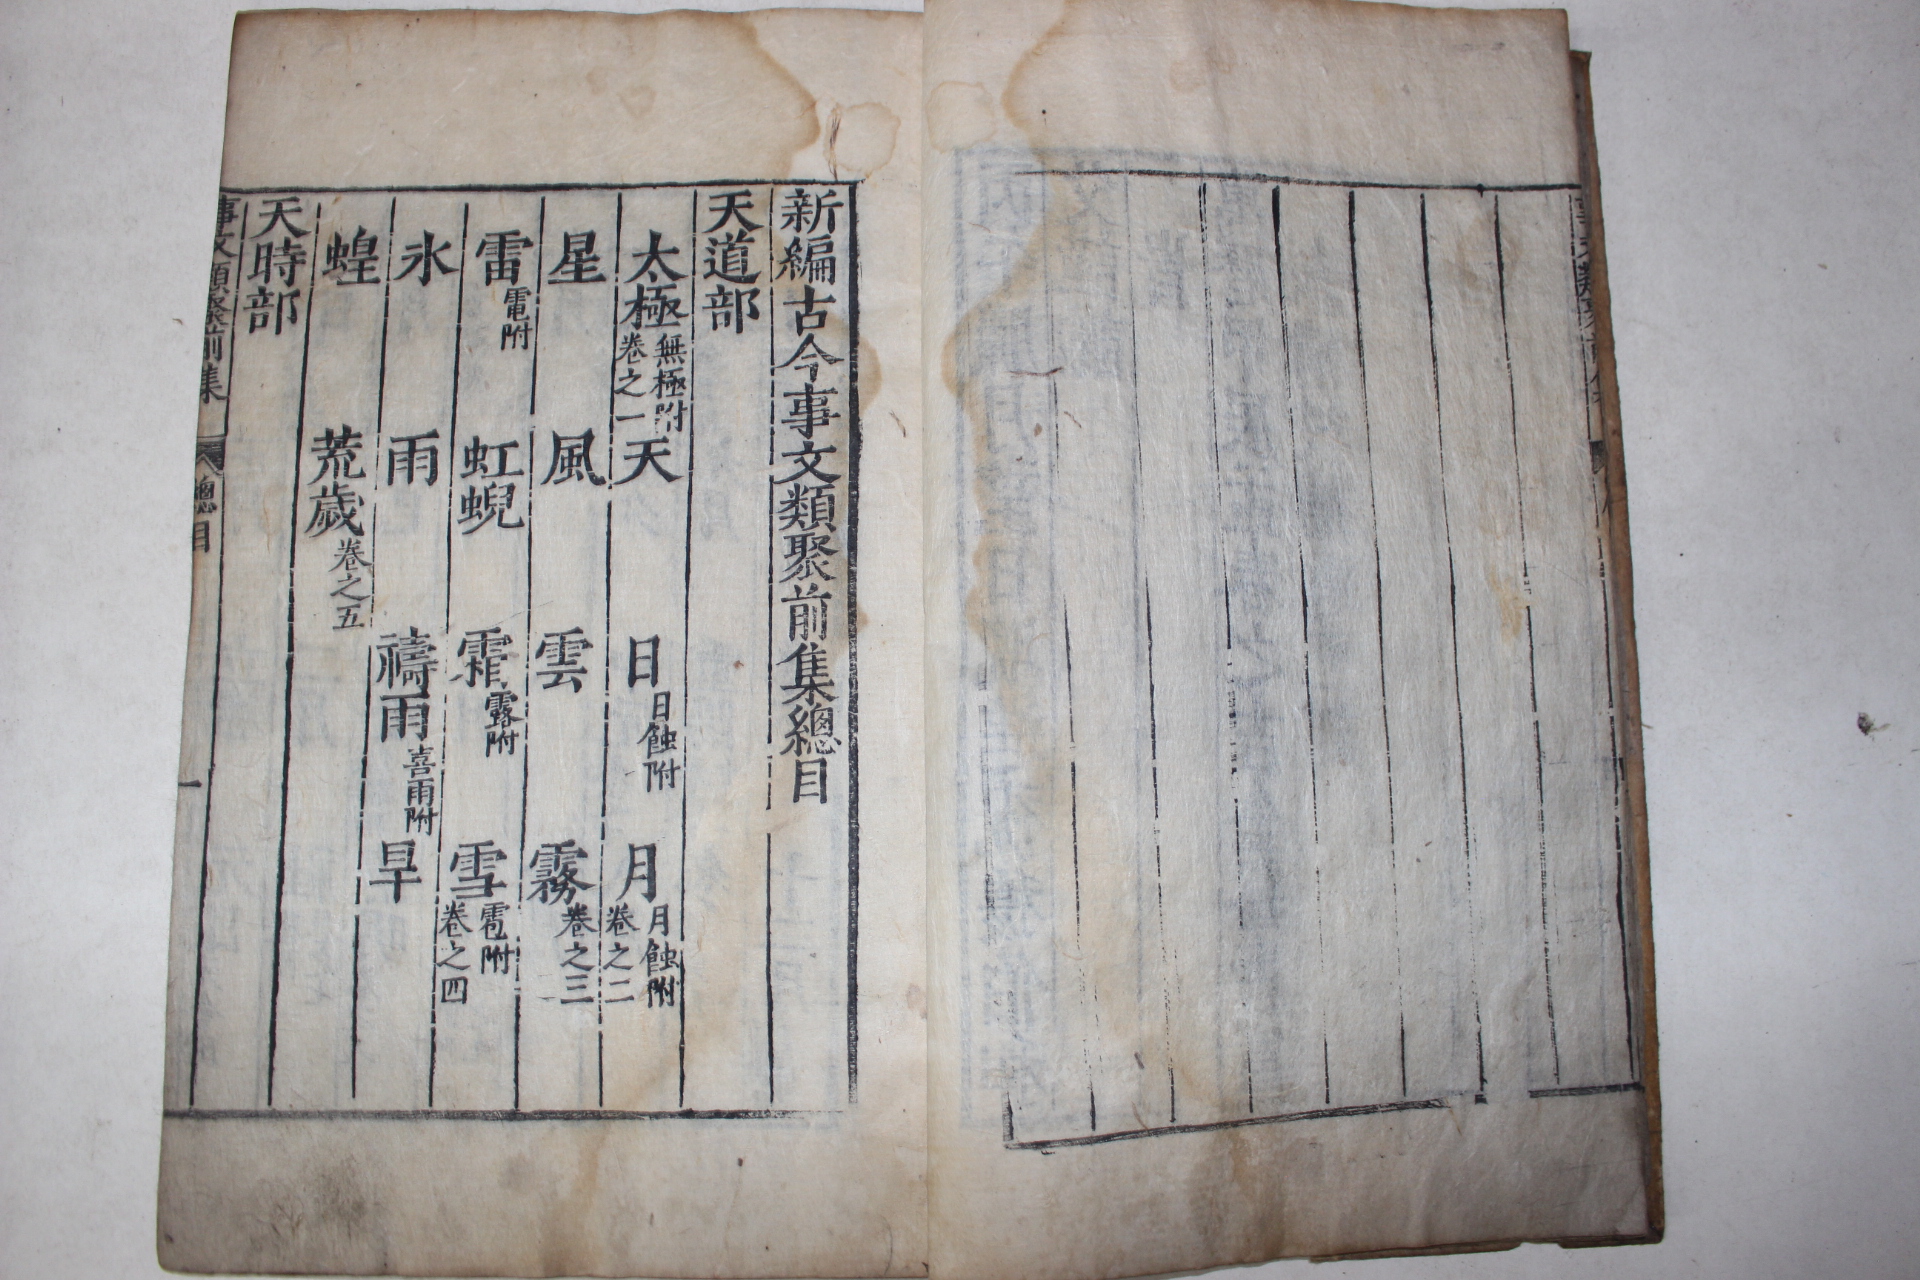 新編古今事文類聚前集總目
天道部
太極 無極附 卷之一 天 日 日蝕附 月 月蝕附 卷之二
星 風 雲 霧 卷之三
雷 電附 虹蜺 霜 露附 雪 雹附 卷之四
氷 雨 禱雨 喜雨附 旱
蝗 荒歲 卷之五
天時部
事文類聚前集 總目 一